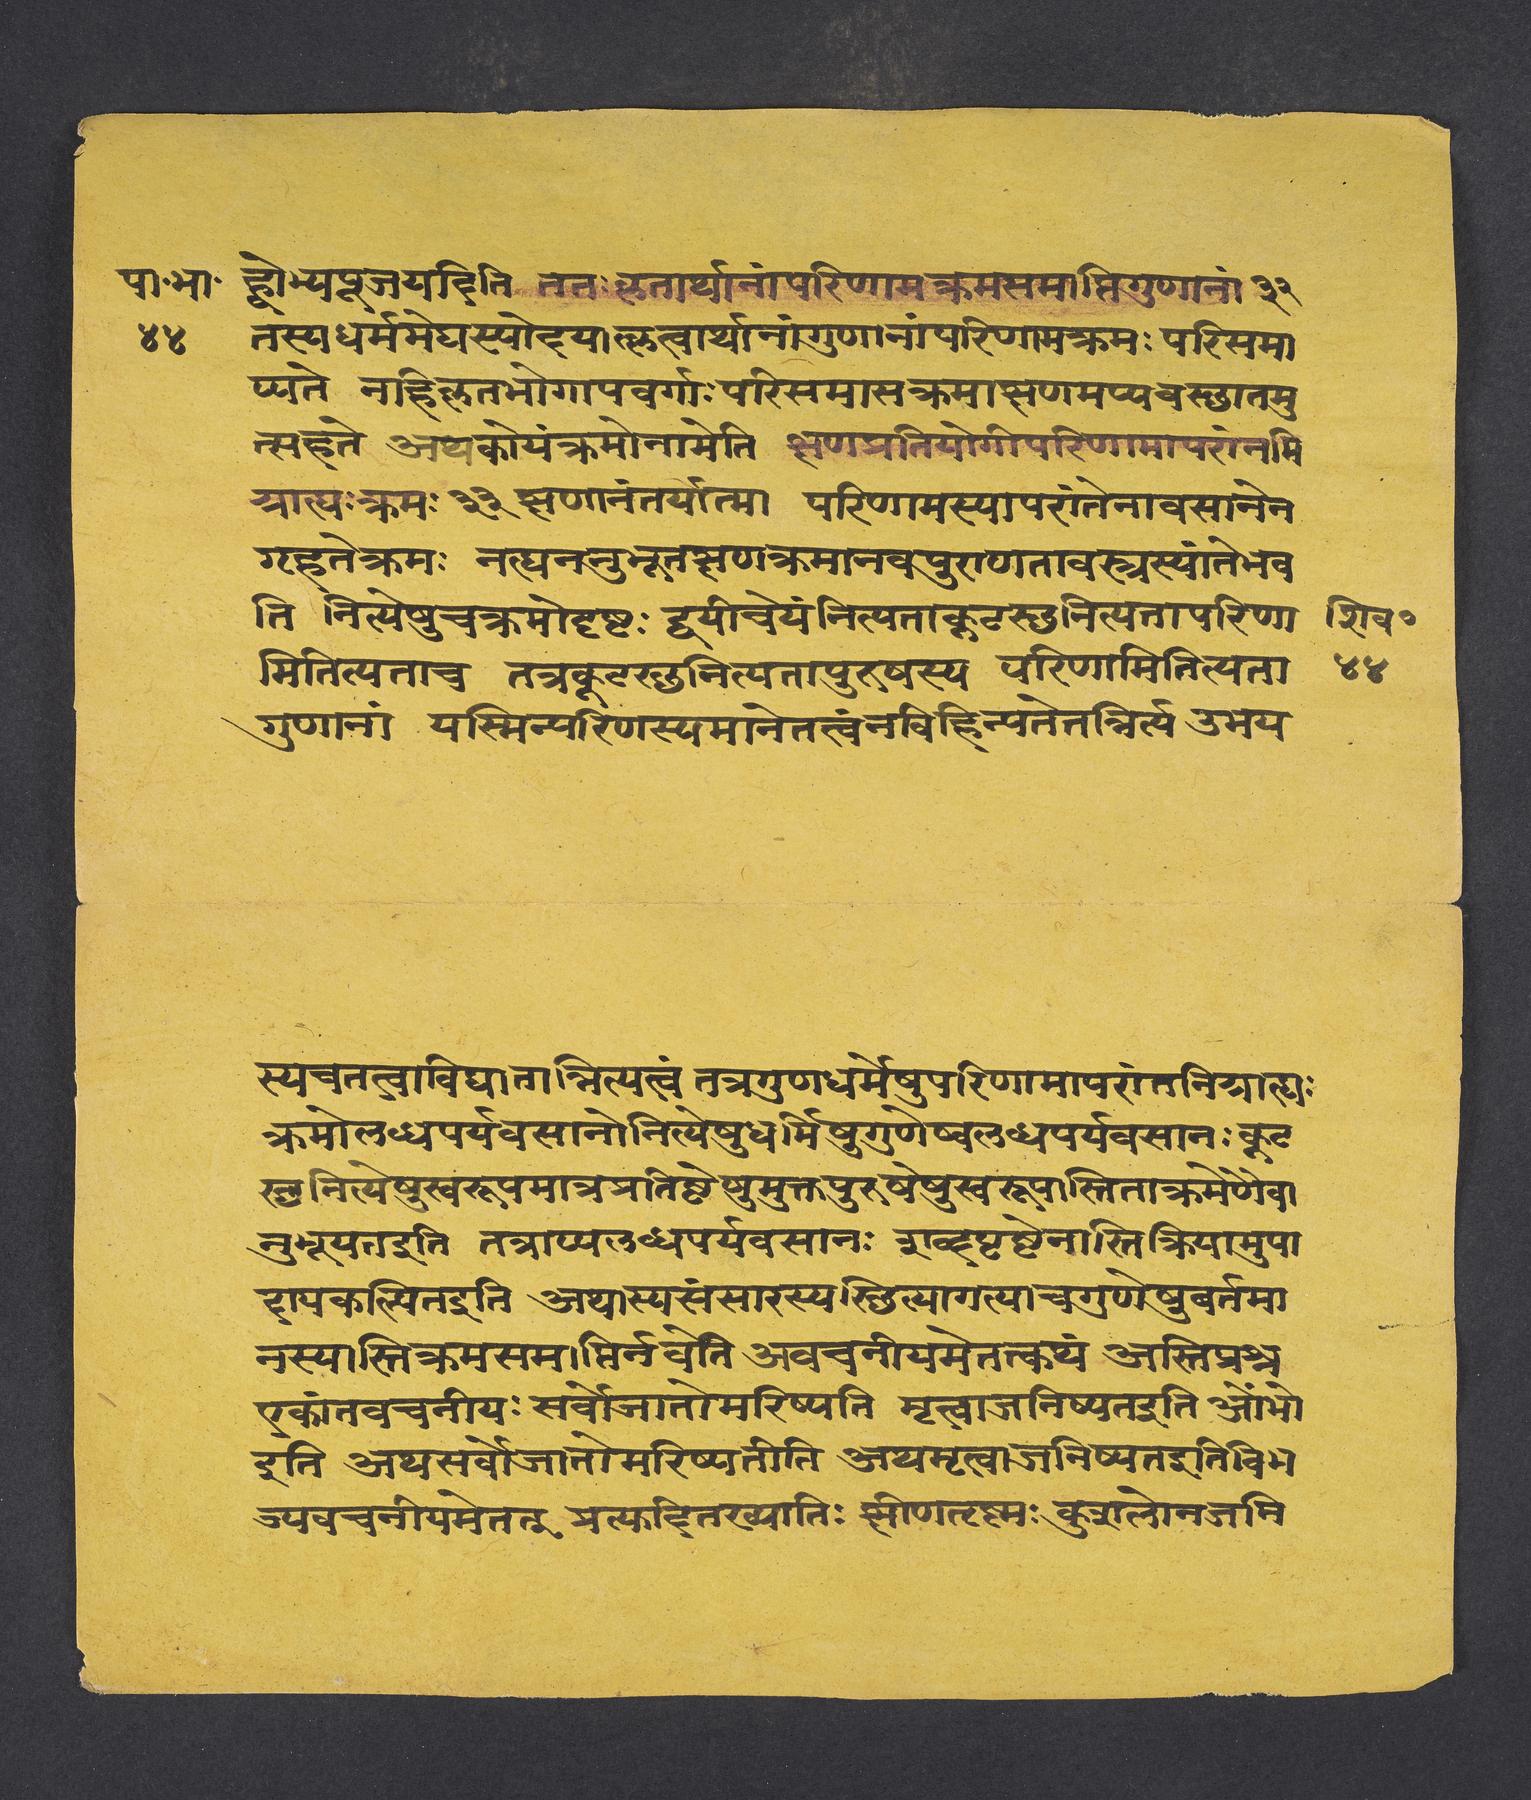 पा॰भा॰ ह्वोभ्यपूजयदिति ततः कृतार्थानांपरिणामक्रमसमाप्तिगुणानां ३२
४४ तस्यधर्ममेघस्योदयात्कृत्वार्थानांगुणानांपरिणामक्रमः परिसमा
प्यते नहिकृतभोगापवर्गाः परिसमासक्रमाक्षणमप्यवस्थातमु
त्सहते अथकोयंक्रमोनामेति क्षणप्रतियोगीपरिणामापरांनमि
ग्रात्यः क्रमः ३३ क्षणानंतर्यात्मा परिणामस्यापरांतेनावसानेन
गृह्तेक्रमः नत्यननुभूतक्षणक्रमानवपुराणतावस्त्रस्यांतेभव
ति नित्येषुचक्रमोदृष्टः द्वयीचेयंनित्यताकूटस्थनित्यतापरिणा शिव॰
मितित्यताच तत्रकूटस्थनित्यतापुरुषस्य परिणामितित्यता ४४
गुणानां यस्मिन्परिणस्यमानेतत्वंनविहिन्यतेतन्नित्यं उभय
स्यचतत्वाविघातान्नित्यत्वं तत्रगुणधर्मेषुपरिणामापरांतनिग्रात्यः
क्रमोलब्धपर्यवसानोनित्येषुधर्मिषुगुणेष्वलब्धपर्यवसानः कूट
स्थनित्येषुस्वरूपमात्रप्रतिष्ठेषुमुक्तपुरुषेषुस्वरूपास्तिताक्रमेणैवा
नुभूयतइति तत्राप्यलब्धपर्यवसानः शब्दपृष्ठेनास्तिक्रियामुपा
दायकल्पितइति अथास्यसंसारस्यस्थित्यागत्याचगुणेषुवर्तमा
नस्यास्तिक्रमसमाप्तिर्नवेति अवचनीयमेतत्कथं अस्तिप्रश्न
एकांतवचनीयः सर्वोजातोमरिष्यति मृत्वाजनिष्यतइति ओंभो
इति अथसर्वोजातोमरिष्यतीति अथमृत्वाजनिष्यतइतिविभ
ज्यवचनीयमेतत् प्रत्यदितख्यातिः क्षीणतृष्मः कुशलोनजनि